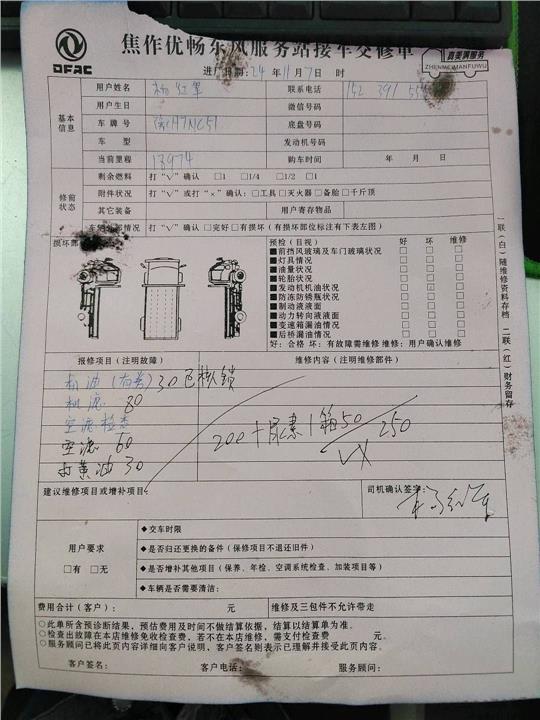 焦作优畅东风服务站接车交修单
真美满服务
ZHENMEIMANFUWU
DFAC
进厂日期:24年11月7日 时
用户姓名 联系电话 152 391
基本信息
用户生日 微信号码
车牌号 底盘号码
车型 发动机号码
当前里程 13974 购车时间 年 月 日
修前状态
剩余燃料 打“√”确认 □1 □1/4 □1/2 □1
附件状况 打“√”或“×”确认:□工具□灭火器□备胎□千斤顶
其它装备 用户寄存物品
车辆外部情况 打“√”确认 □完好□有损坏(有损坏部位标注有下表左图)
损坏部
预检(目视) 好 坏 维修
■前挡风玻璃及车门玻璃状况 □ □ □
■灯具情况 □ □ □
■油量状况 □ □ □
■轮胎状况 □ □ □
■发动机机油状况 □ □ □
■防冻防锈瓶状况 □ □ □
■制动液液面 □ □ □
■动力转向液液面 □ □ □
■变速箱漏油情况 □ □ □
■后桥漏油情况 □ □ □
好:合格 坏:有故障需维修 维修:用户确认维修
一联(白)随维修资料存档 二联(红)财务留存
报修项目(注明故障) 维修内容(注明维修部件)
机油 30
机滤 80
空滤检查
空滤 60
打黄油 30
200+尿素1箱50 250
VX
建议维修项目或增补项目: 司机确认签字:
用户要求
□有 □无
◆交车时限
◆是否归还更换的备件(保修项目不退还旧件)
◆是否增补其他项目(保养、年检、空调系统检查、加装项目等)
◆车辆是否需要清洁:
费用合计(客户): 元 维修及三包件不允许带走
○此单所含预诊断结果,预估费用及时间不做结算依据,结算以结算单为准。
○检查出故障在本店维修免收检查费,若不在本店维修,需支付检查费 元。
○服务顾问已将此页内容详细向客户说明,客户签名则表示已理解并接受此页内容。
客户签名: 客户电话: 服务顾问: